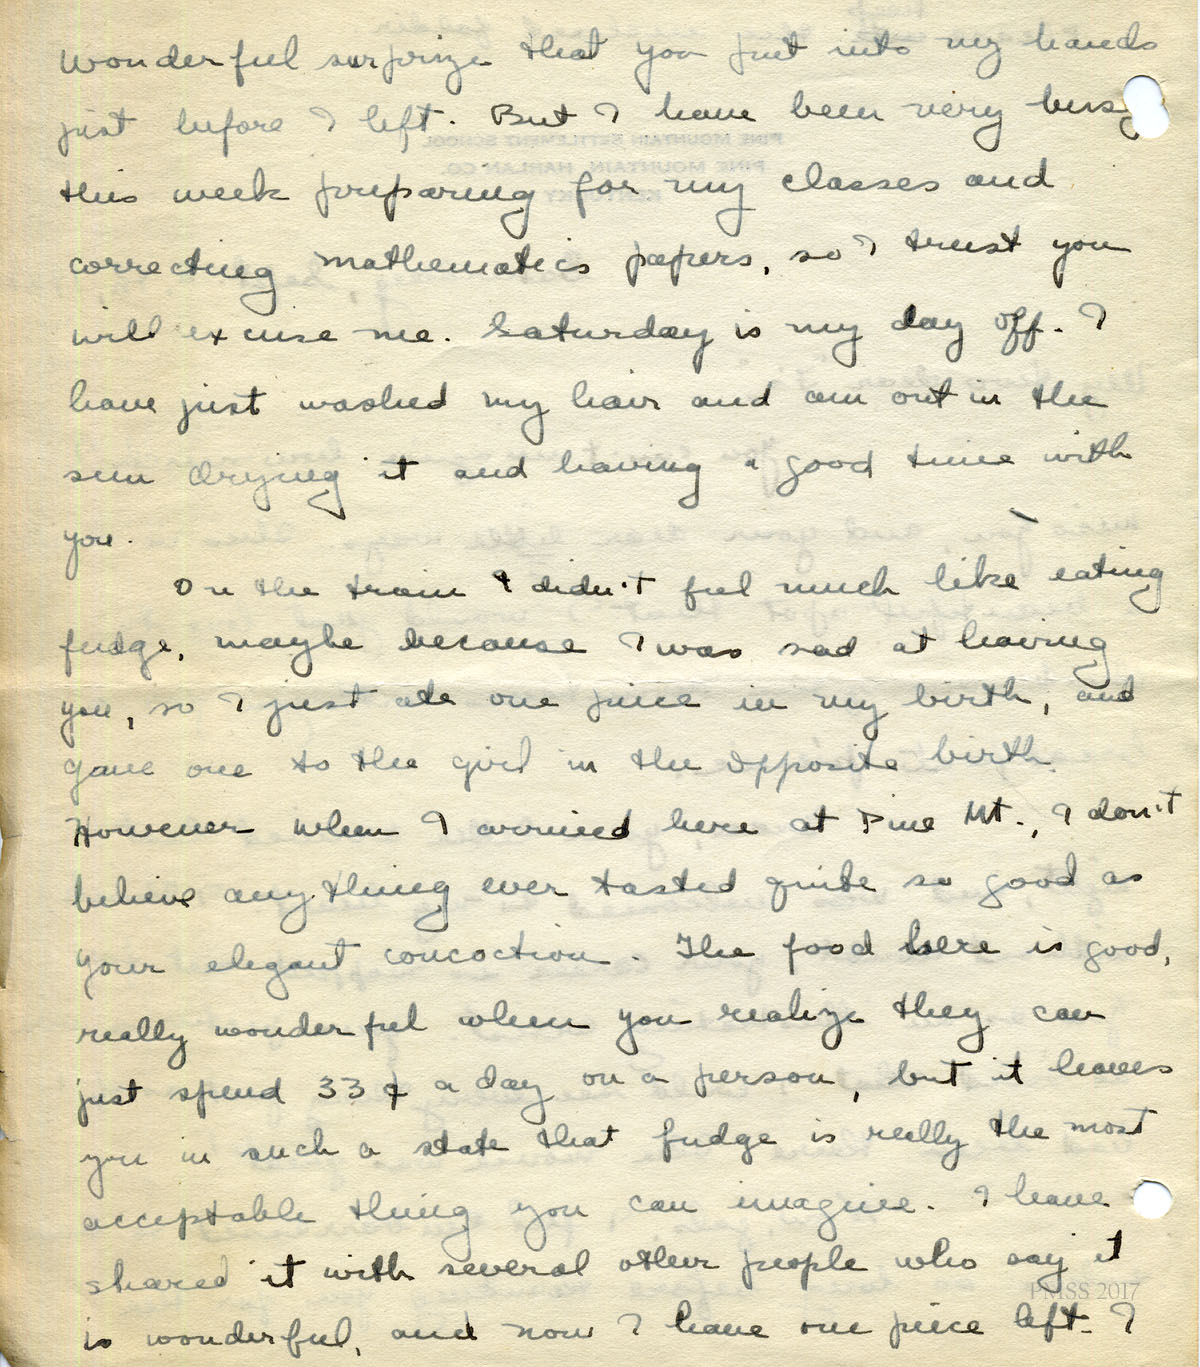 wonderful surprize that you put into my hands
just before I left. But I have been very busy
this week preparing for my classes and
correcting mathematics papers, so I trust you
will excuse me. Saturday is my day off. I
have just washed my hair and am out in the
sun drying it and having a good time with
you.
On the train I didn't feel much like eating
fudge, maybe because I was sad at leaving
you, so I just ate one piece in my birth, and
gave one to the girl in the opposite birth.
However when I arrived here at Pine Mt., I don't
believe anything ever tasted quite so good as
your elegant concoction. The food here is good,
really wonderful when you realize they can
just spend 33¢ a day on a person, but it leaves
you in such a state that fudge is really the most
acceptable thing you can imagine. I have
shared it with several other people who say it
is wonderful, and now I have one piece left. I
PMSS 2017
PINE MOUNTAIN SETTLEMENT SCHOOL
PINE MOUNTAIN, HARLAN CO.
KENTUCKY